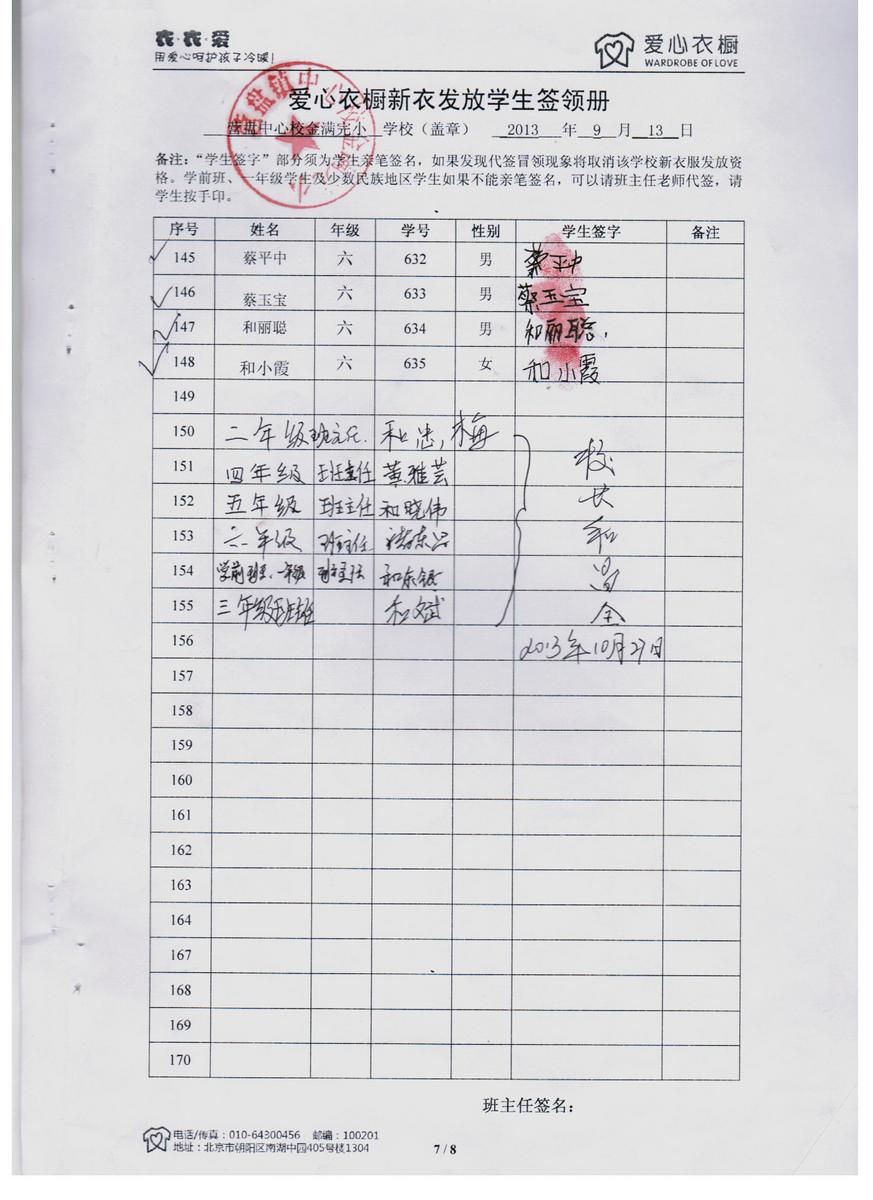 衣·衣·爱
用爱心呵护孩子冷暖!
爱心衣橱
WARDROBE OF LOVE
爱心衣橱新衣发放学生签领册
营盘中心校金满完小 学校（盖章） 2013 年 9 月 13 日
备注：“学生签字”部分须为学生亲笔签名，如果发现代签冒领现象将取消该学校新衣服发放资
格。学前班、一年级学生及少数民族地区学生如果不能亲笔签名，可以请班主任老师代签，请
学生按手印。
序号 姓名 年级 学号 性别 学生签字 备注
145 蔡平中 六 632 男 蔡平中
146 蔡玉宝 六 633 男 蔡玉宝
147 和丽聪 六 634 男 和丽聪
148 和小霞 六 635 女 和小霞
149
150 二年级班主任 和忠梅
151 四年级 班主任 黄雅芸 校
152 五年级 班主任 和晓伟 长
153 六年级 班主任 和
154 学前班、一年级 班主任 和东银
155 三年级班主任 和斌 全
156 2013年10月27日
157
158
159
160
161
162
163
164
165
166
167
168
169
170
班主任签名：
电话/传真：010-64300456 邮编：100201
地址：北京市朝阳区南湖中园405号楼1304
7 / 8